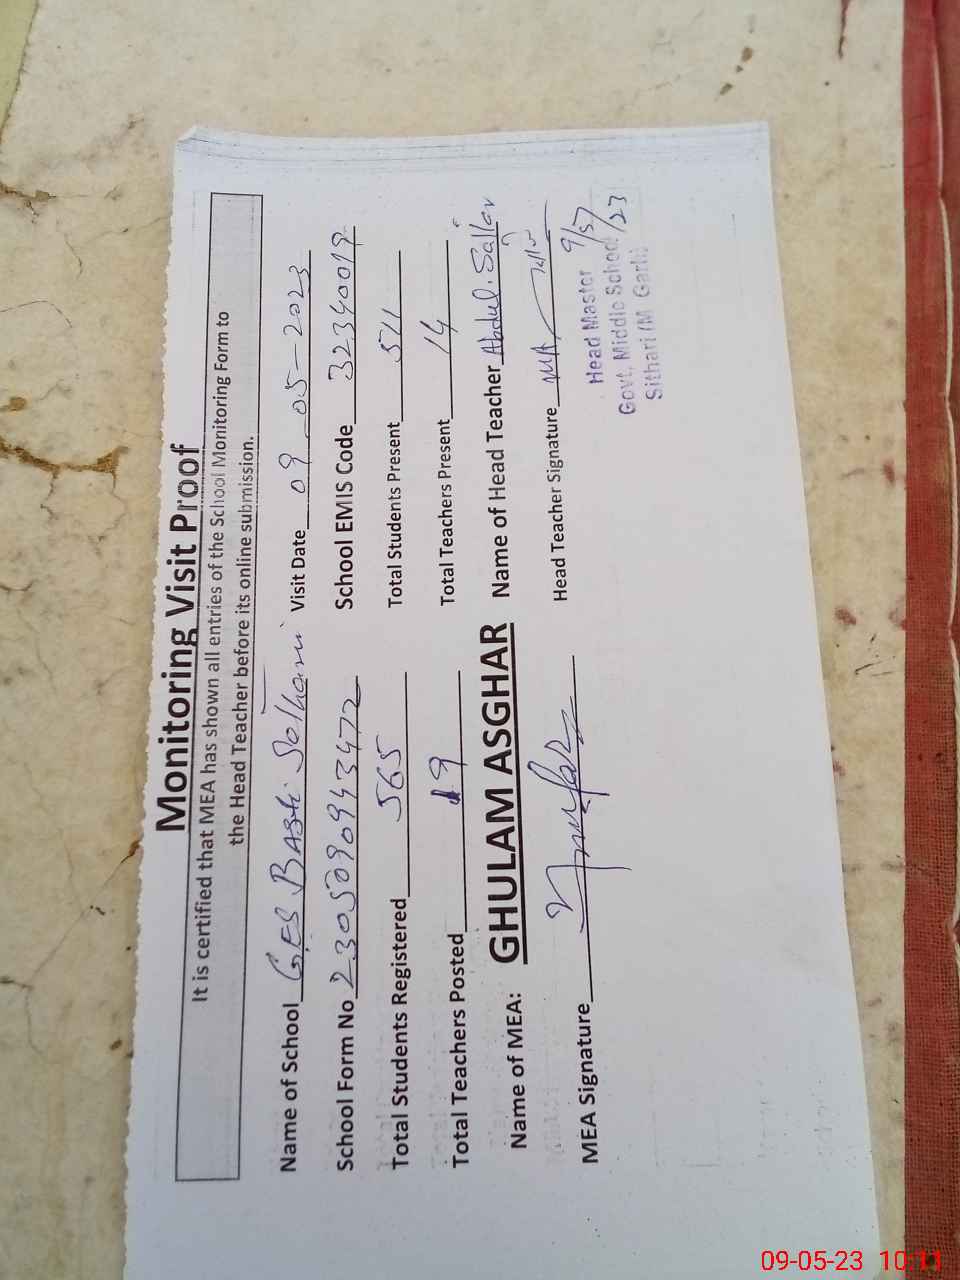 Monitoring Visit Proof
It is certified that MEA has shown all entries of the School Monitoring Form to
the Head Teacher before its online submission.
Name of School GES Basti Sethari Visit Date 09-05-2023
School Form No 2305090943472 School EMIS Code 32340019
Total Students Registered 565 Total Students Present 511
Total Teachers Posted 19 Total Teachers Present 14
Name of MEA: GHULAM ASGHAR Name of Head Teacher Abdul Sattar
MEA Signature Head Teacher Signature
9/5/23
Head Master
Govt. Middle School
Sithari (M. Garh)
09-05-23 10:11